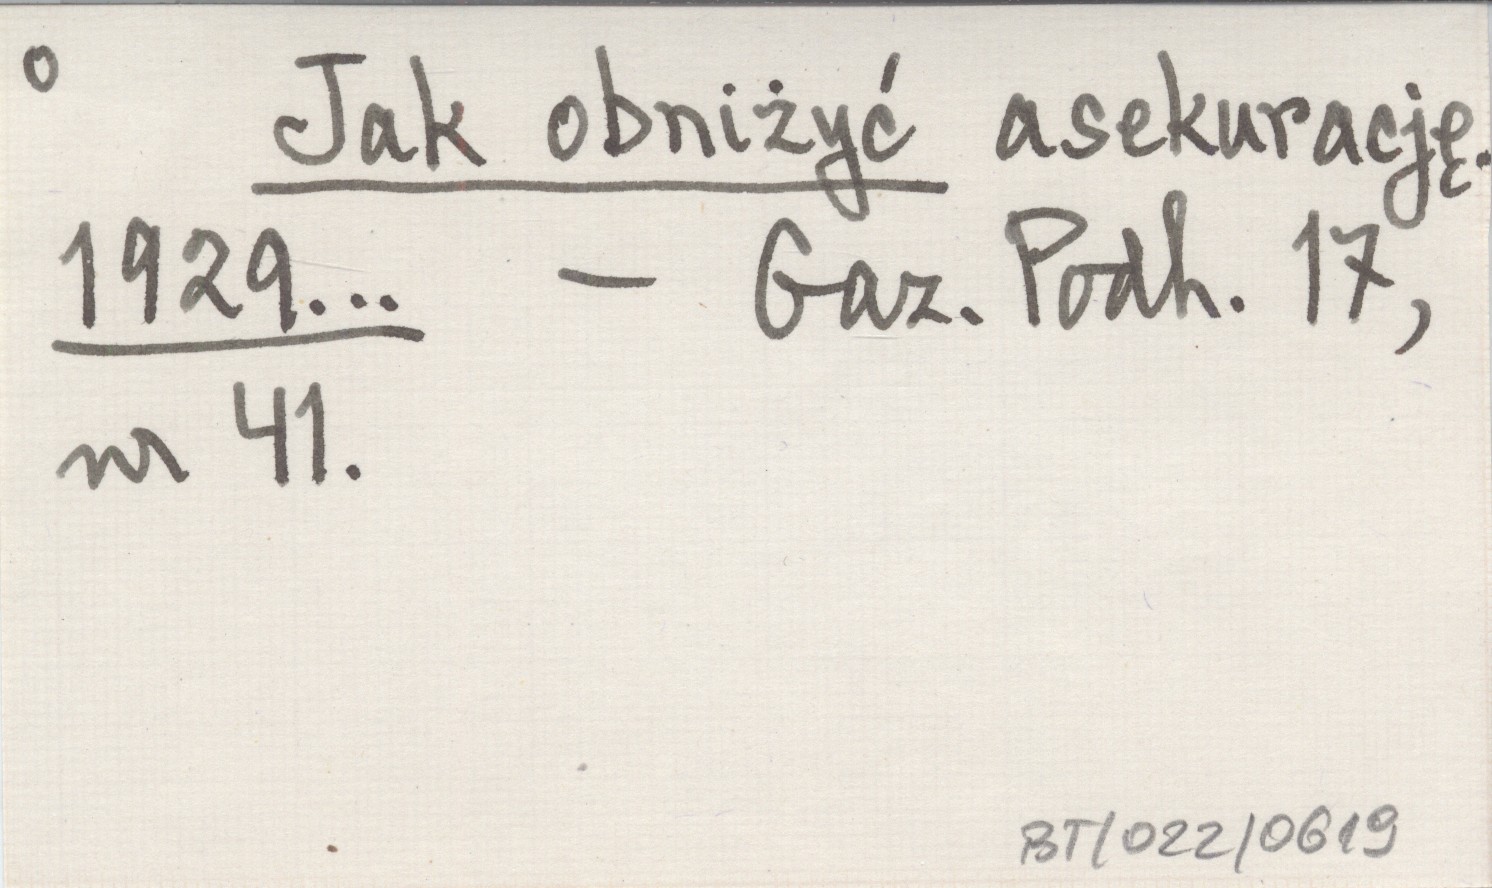 o
Jak obniżyć asekurację.
1929... — Gaz. Podh. 17,
nr 41.
BT/022/0619